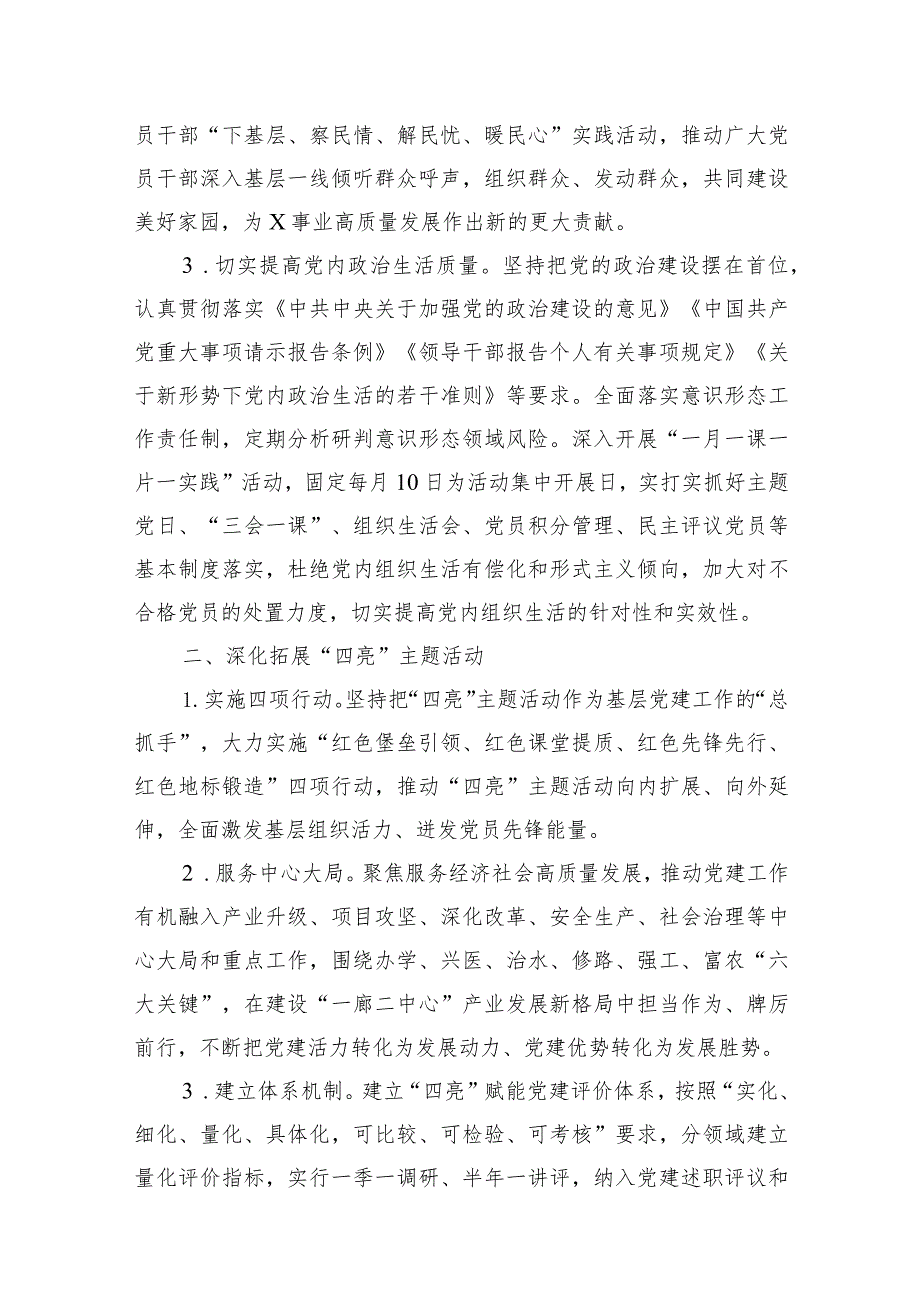 员干部“下基层、察民情、解民忧、暖民心”实践活动，推动广大党
员干部深入基层一线倾听群众呼声，组织群众、发动群众，共同建设
美好家园，为X事业高质量发展作出新的更大贡献。
3 .切实提高党内政治生活质量。坚持把党的政治建设摆在首位，
认真贯彻落实《中共中央关于加强党的政治建设的意见》《中国共产
党重大事项请示报告条例》《领导干部报告个人有关事项规定》《关
于新形势下党内政治生活的若干准则》等要求。全面落实意识形态工
作责任制，定期分析研判意识形态领域风险。深入开展“一月一课一
片一实践”活动，固定每月10日为活动集中开展日，实打实抓好主题
党日、“三会一课”、组织生活会、党员积分管理、民主评议党员等
基本制度落实，杜绝党内组织生活有偿化和形式主义倾向，加大对不
合格党员的处置力度，切实提高党内组织生活的针对性和实效性。
二、深化拓展“四亮”主题活动
1.实施四项行动。坚持把“四亮”主题活动作为基层党建工作的“总
抓手”，大力实施“红色堡垒引领、红色课堂提质、红色先锋先行、
红色地标锻造”四项行动，推动“四亮”主题活动向内扩展、向外延
伸，全面激发基层组织活力、迸发党员先锋能量。
2 .服务中心大局。聚焦服务经济社会高质量发展，推动党建工作
有机融入产业升级、项目攻坚、深化改革、安全生产、社会治理等中
心大局和重点工作，围绕办学、兴医、治水、修路、强工、富农“六
大关键”，在建设“一廊二中心”产业发展新格局中担当作为、牌厉
前行，不断把党建活力转化为发展动力、党建优势转化为发展胜势。
3 .建立体系机制。建立“四亮”赋能党建评价体系，按照“实化、
细化、量化、具体化，可比较、可检验、可考核”要求，分领域建立
量化评价指标，实行一季一调研、半年一讲评，纳入党建述职评议和